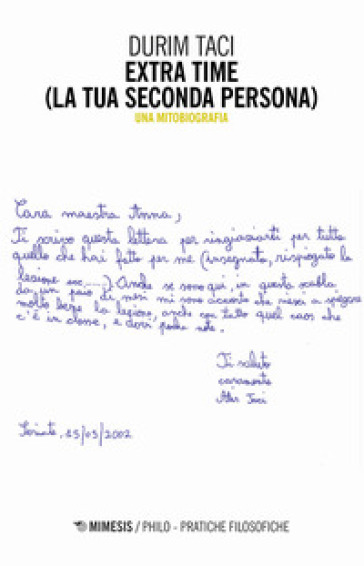 DURIM TACI
EXTRA TIME
(LA TUA SECONDA PERSONA)
UNA MITOBIOGRAFIA
Cara maestra Anna,
Ti scrivo questa lettera per ringraziarti per tutto
quello che hai fatto per me (insegnato, rispiegato la
lezione ecc......). Anche se sono qui, in questa scuola
da un paio di mesi mi sono accorto che riesci a spiegare
molto bene la lezione, anche con tutto quel caos che
c'è in classe, e dovi poche note.
Ti saluto
caramente
Taci
25/05/2002
MIMESIS / PHILO - PRATICHE FILOSOFICHE